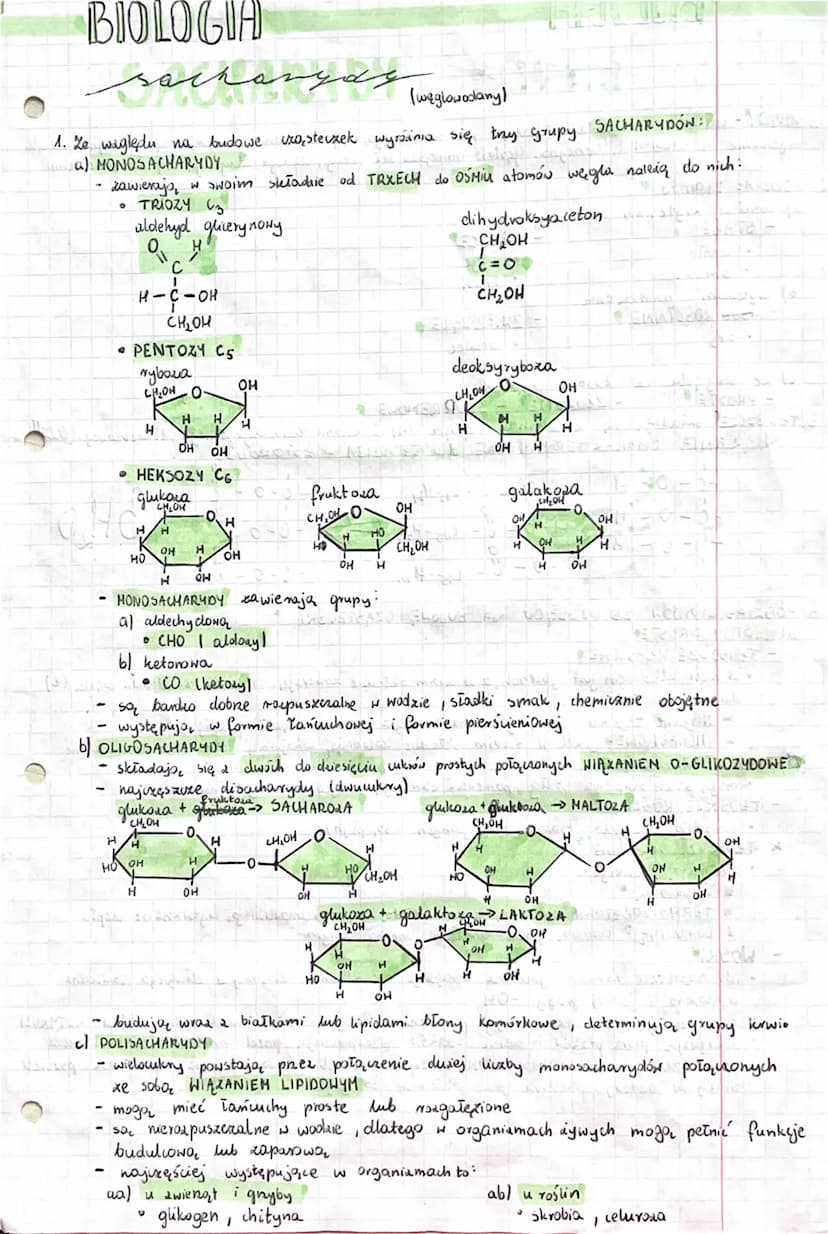 BIOLOGIA
SACHARYDY
sacharydy
(węglowodany)
1. Ze względu na budowę cząsteczek wyróżnia się trzy grupy SACHARYDÓW:
a) MONOSACHARYDY
- zawierają w swoim składzie od TRZECH do OŚMIU atomów węgla należą do nich:
• TRIOZY C3
aldehyd glicerynowy
dihydroksyaceton
O H
C
H - C - OH
CH2OH
CH2OH
C = O
CH2OH
• PENTOZY C5
ryboza
deoksyryboza
CH2OH O OH
H H H H
OH OH
CH2OH O OH
H H H H
OH H
• HEKSOZY C6
glukoza
fruktoza
galakoza
CH2OH
O
H H H
HO OH H OH
H OH
CH2OH O OH
HO H HO CH2OH
OH H
CH2OH
O
OH H OH
H OH H H
H OH
- MONOSACHARYDY zawierają grupy:
a) aldechydową
• CHO (aldozy)
b) ketonowa
• CO (ketozy)
- są bardzo dobrze rozpuszczalne w wodzie, słodki smak, chemicznie obojętne
- występują w formie łańcuchowej i formie pierścieniowej
b) OLIGOSACHARYDY
- składają się z dwóch do dziesięciu cukrów prostych połączonych WIĄZANIEM O-GLIKOZYDOWE
- najczęszsze disacharydy (dwucukry)
glukoza + fruktoza → SACHAROZA
glukoza + glukoza → MALTOZA
CH2OH
H O H CH2OH O H
HO OH H O H HO CH2OH
H OH OH H
CH2OH CH2OH
H O H H O OH
HO OH H O H OH H H
H OH H OH
glukoza + galaktoza → LAKTOZA
CH2OH CH2OH
H O O H O OH
HO OH H H OH H H
H OH H OH
- budują wraz z białkami lub lipidami błony komórkowe, determinują grupy krwi
c) POLISACHARYDY
- wielocukry powstają przez połączenie dużej liczby monosacharydów połączonych
ze sobą WIĄZANIEM LIPIDOWYM
- mogą mieć łańcuchy proste lub rozgałęzione
- są nierozpuszczalne w wodzie, dlatego w organizmach żywych mogą pełnić funkcje
budulcową lub zapasową
- najczęściej występujące w organizmach to:
aa) u zwierząt i grzyby
ab) u roślin
• glikogen, chityna
• skrobia, celuroza